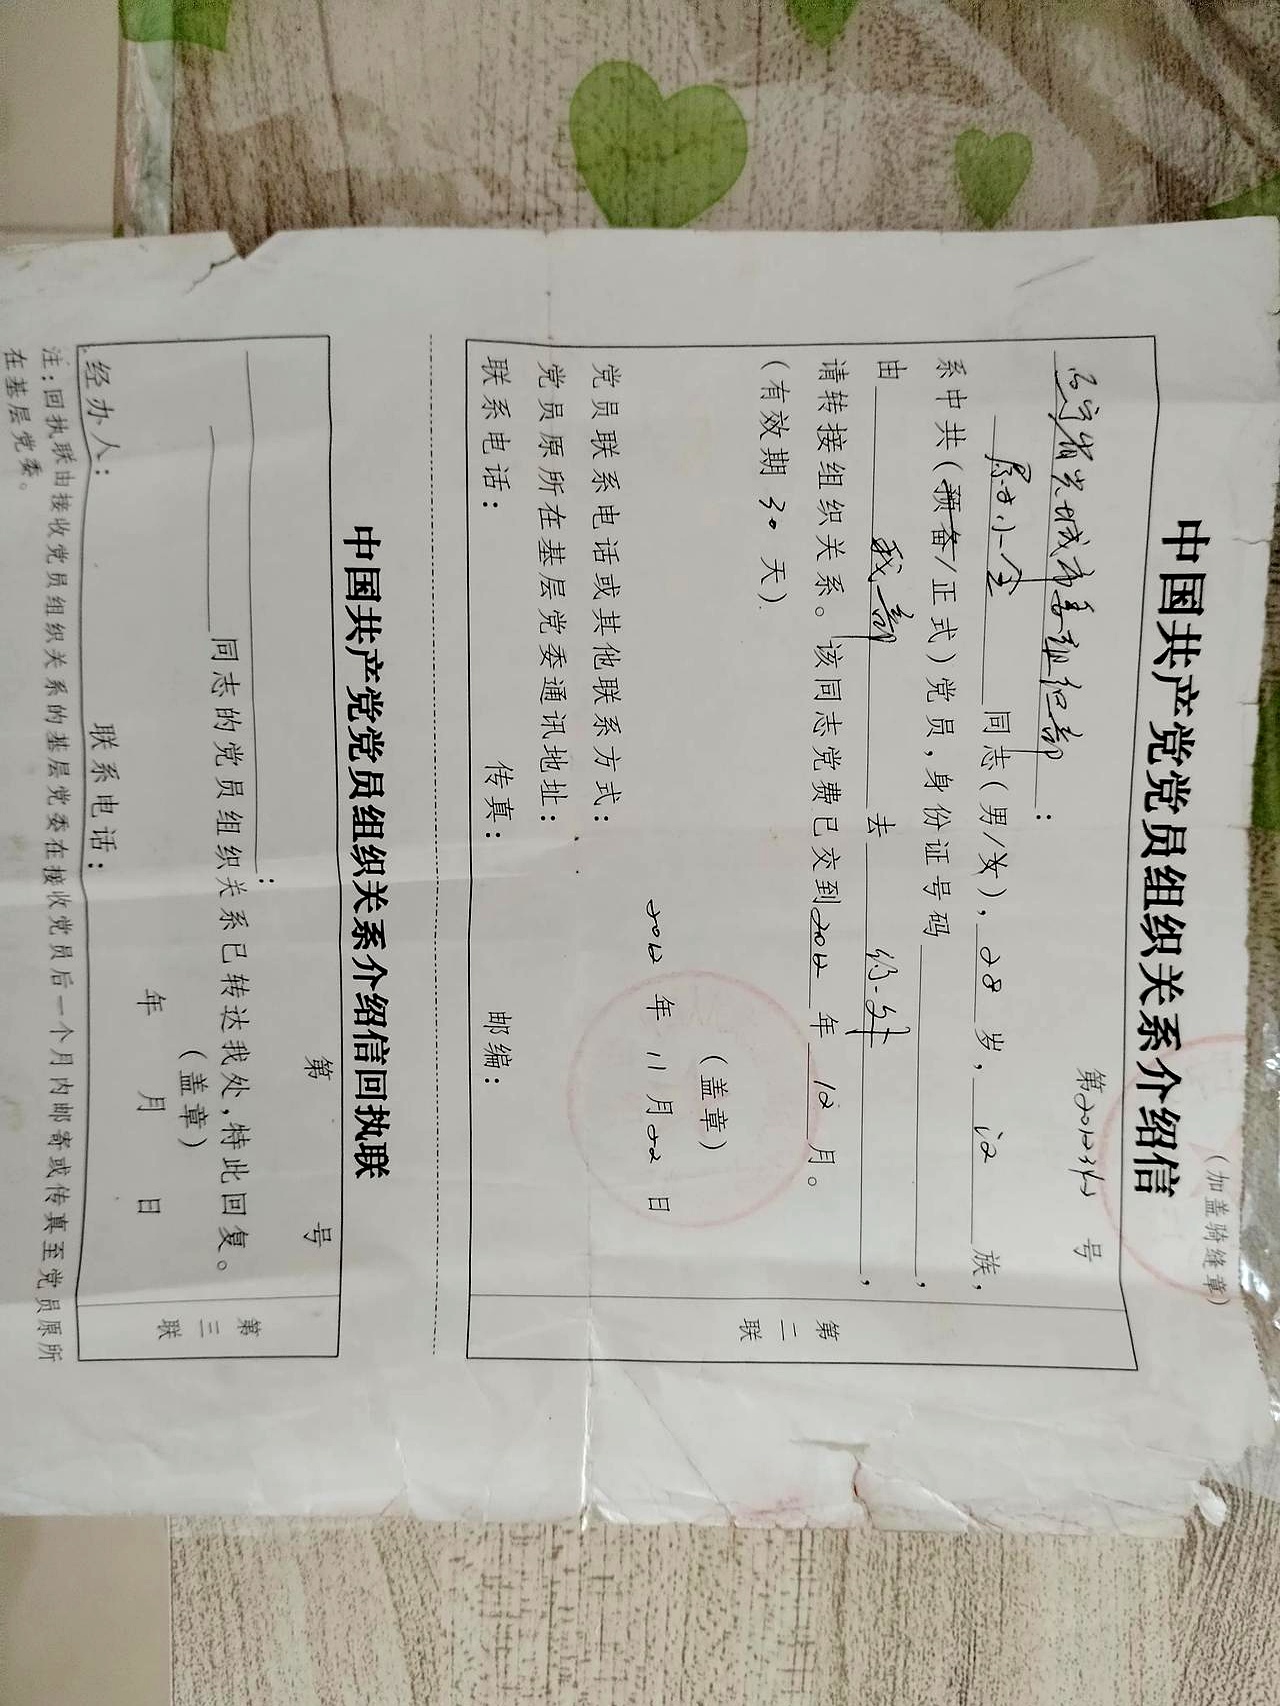 中国共产党党员组织关系介绍信
(加盖骑缝章)
第 号
省 城市委组织部:
小 同志(男/女), 28 岁, 汉 族,
系中共(预备/正式)党员,身份证号码 ,
由 我部 去 ,
请转接组织关系。该同志党费已交到2012 年 12 月。
(有效期 30 天)
(盖章)
2012 年 11 月 22 日
党员联系电话或其他联系方式:
党员原所在基层党委通讯地址:
联系电话: 传真: 邮编:
第二联
中国共产党党员组织关系介绍信回执联
第 号
:
同志的党员组织关系已转达我处,特此回复。
(盖章)
年 月 日
经办人: 联系电话:
第三联
注:回执联由接收党员组织关系的基层党委在接收党员后一个月内邮寄或传真至党员原所
在基层党委。